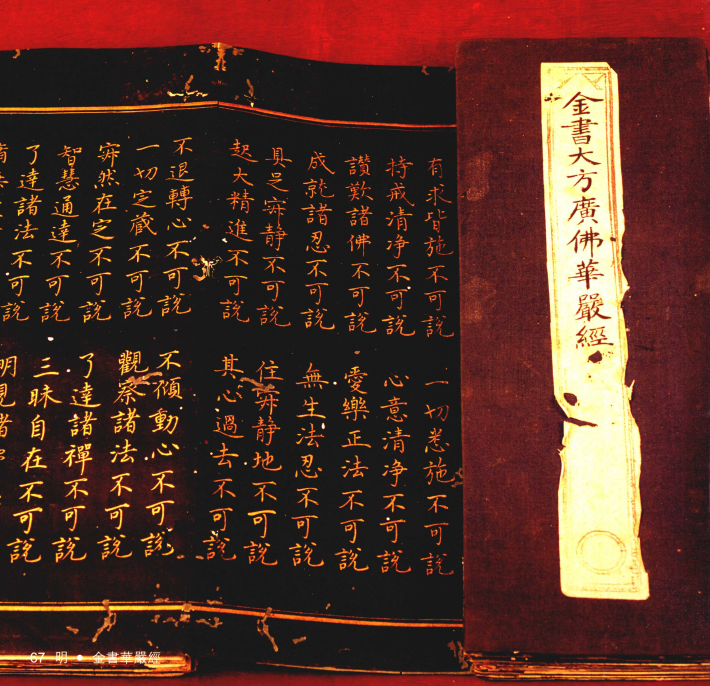 金書大方廣佛華嚴經
有求皆施不可說 一切悉施不可說
持戒清净不可說 心意清净不可說
讚歎諸佛不可說 愛樂正法不可說
成就諸忍不可說 無生法忍不可說
具足寂静不可說 住寂静地不可說
起大精進不可說 其心過去不可說
不退轉心不可說 不傾動心不可說
一切定藏不可說 觀察諸法不可說
寂然在定不可說 了達諸禪不可說
智慧通達不可說 三昧自在不可說
了達諸法不可說 明見諸 可說
67 明 ● 金書華嚴經